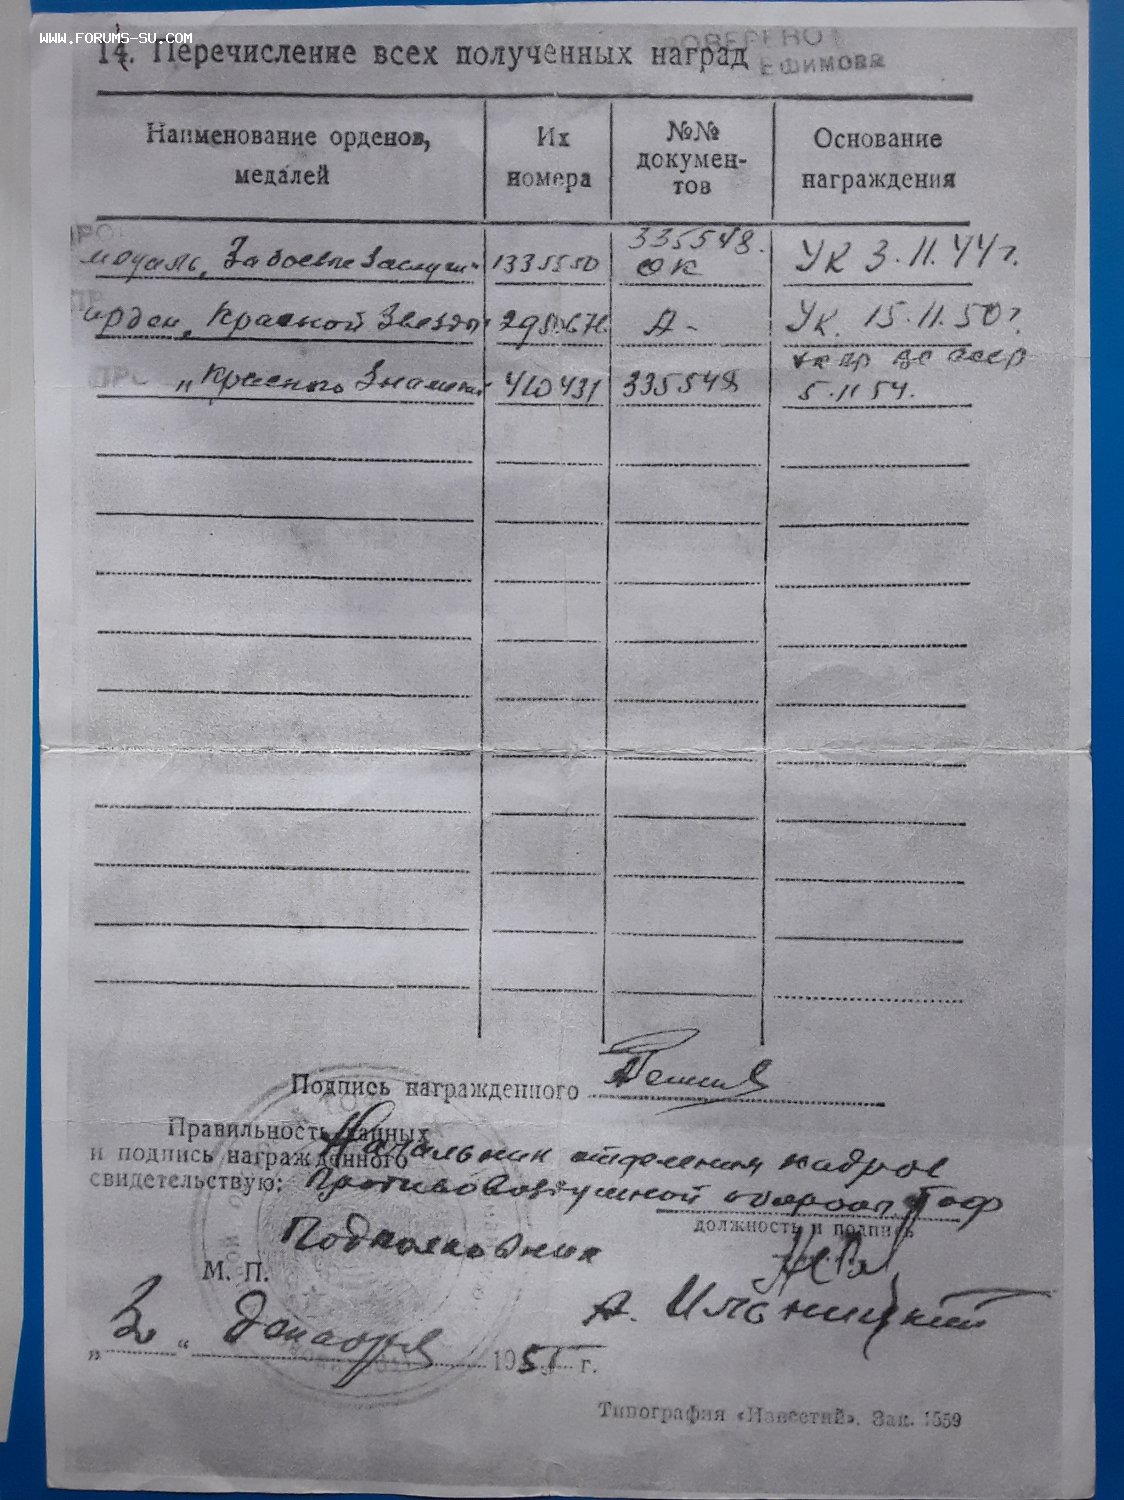 WWW.FORUMS-SU.COM
14. Перечисление всех полученных наград
ЕФИМОВА
Наименование орденов, медалей
Их номера
№№ документов
Основание награждения
медаль „За боевые заслуги" 1335550 335548. ОК УК 3.11.44 г.
орден „Красной Звезды" А - УК. 15.11.50 г.
„Красного Знамени 410431 335548 Указ ПР ВС СССР 5.11 54.
Подпись награжденного
Правильность данных
и подпись награжденного
свидетельствую:
Начальник отделения кадров
Противовоздушной обороны ТОФ
должность и подпись
Подполковник
М. П.
А. Ильницкий
„ " декабря 1955 г.
Типография «Известий». Зак. 1559